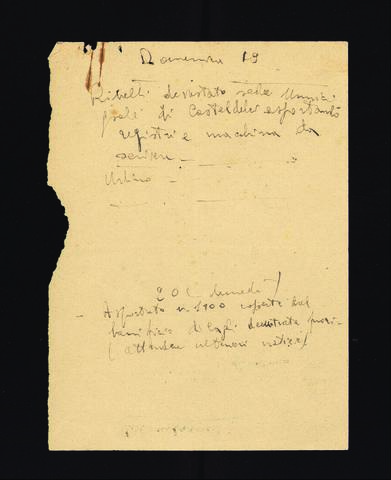 Domenica 19
Ribelli devastato sede Munici
pale di Casteldelci asportando
registri e macchina da
scrivere
Urbino
20 (lunedì)
Asportato n. 1100 coperte dal
(attendesi ulteriori notizie)